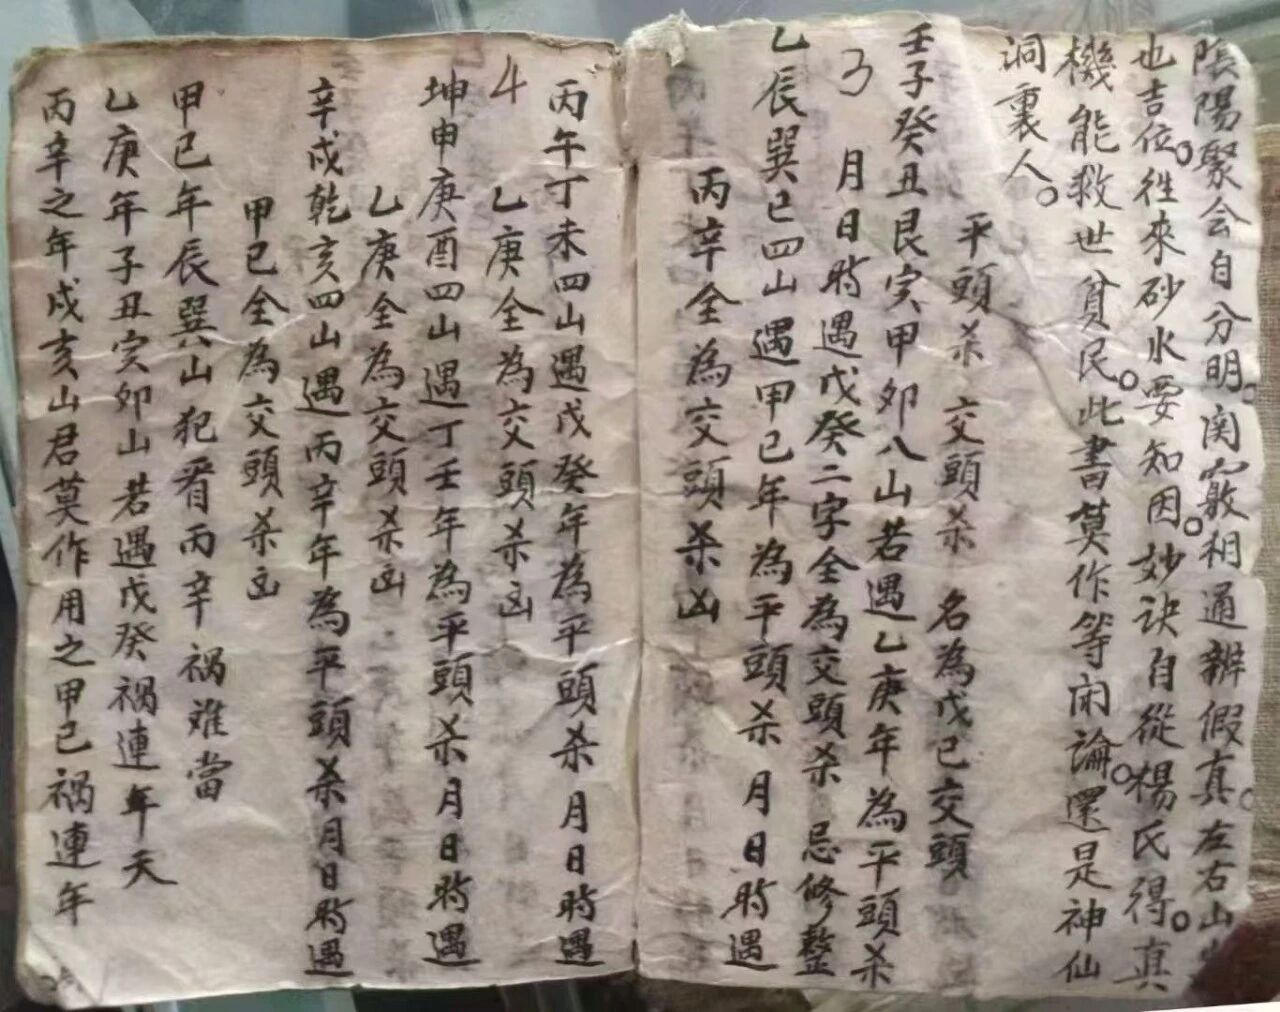 陰陽聚会自分明。関竅相通辨假真。左右山
也吉位。徃來砂水要知因。妙訣自從楊氏得。真
機能救世貧民。此書莫作等闲論。還是神仙
洞裏人。
平頭杀 交頭杀 名為戊己交頭
壬子癸丑艮寅甲卯八山若遇乙庚年為平頭杀
3 月日時遇戊癸二字全為交頭杀 忌修整
乙辰巽巳四山遇甲己年為平頭杀 月日時遇
丙辛全為交頭杀凶
丙午丁未四山遇戊癸年為平頭杀月日時遇
4 乙庚全為交頭杀凶
坤申庚酉四山遇丁壬年為平頭杀月日時遇
乙庚全為交頭杀凶
辛戌乾亥四山遇丙辛年為平頭杀月日時遇
甲己全為交頭杀凶
甲己年辰巽山犯着丙辛禍难當
乙庚年子丑寅卯山若遇戊癸禍連年天
丙辛之年戌亥山君莫作用之甲己禍連年